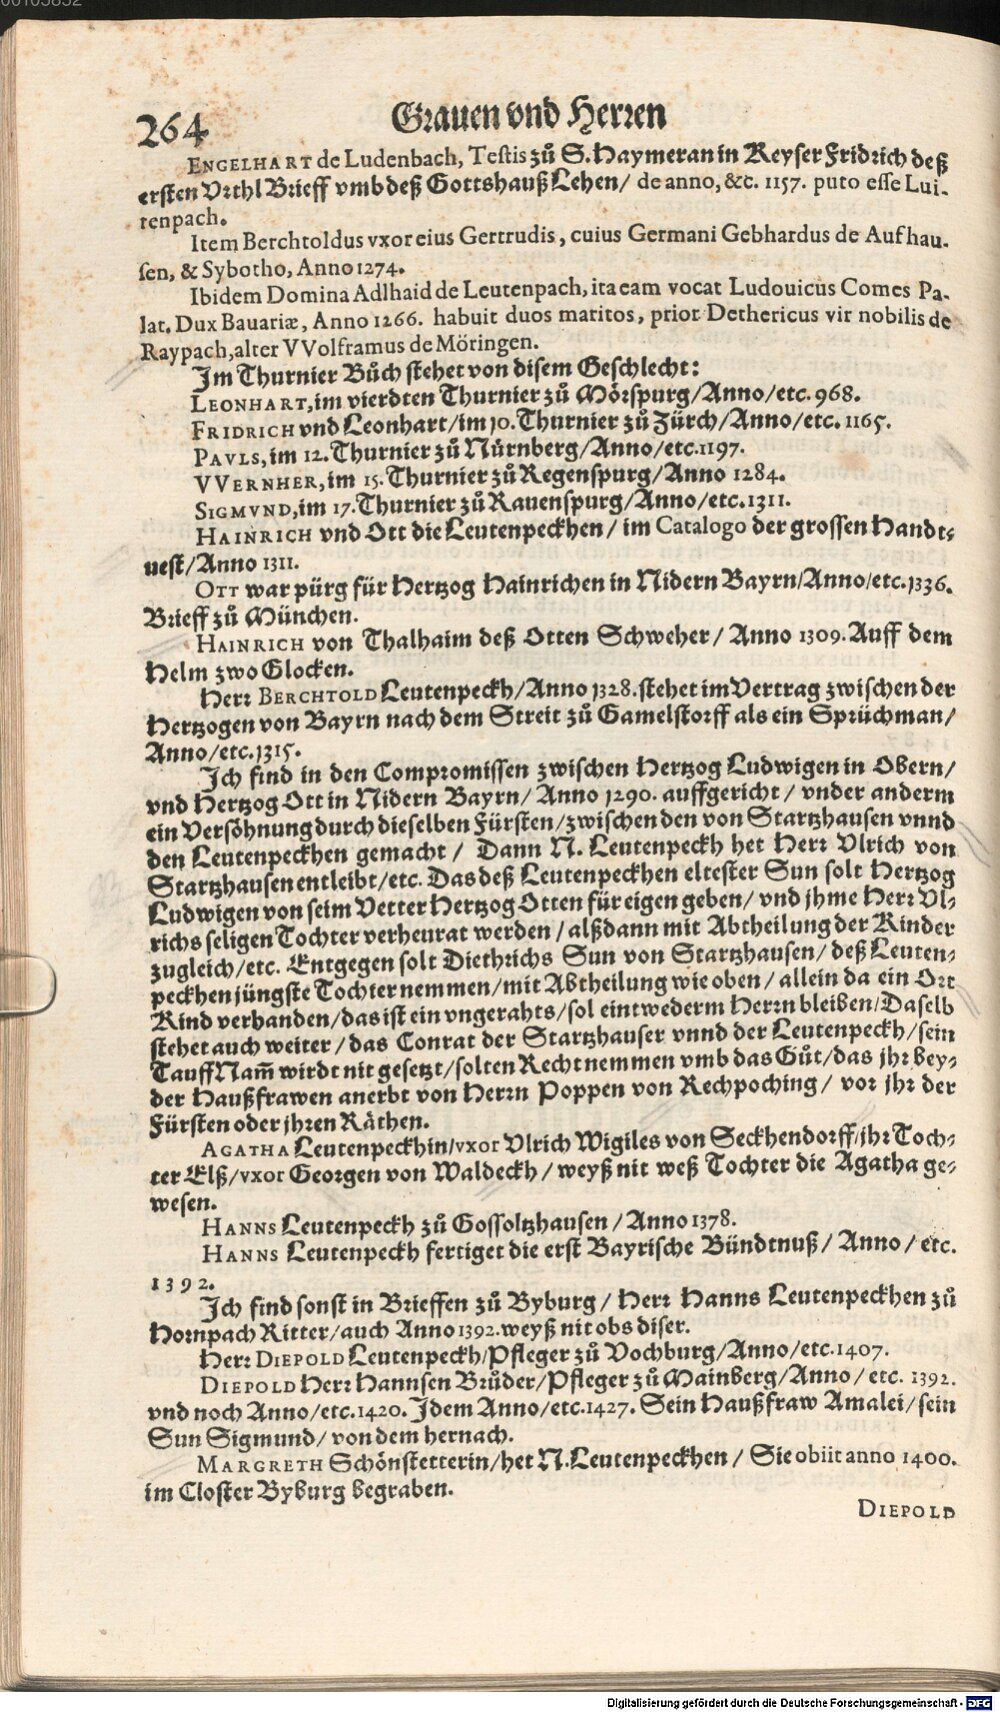 00103832
264
Grauen vnd Herren
ENGELHART de Ludenbach, Testis zů S. Haymeran in Keyser Fridrich deß
ersten Vrthl Brieff vmb deß Gottshauß Lehen/ de anno, &c. 1157. puto esse Lui-
tenpach.
Item Berchtoldus vxor eius Gertrudis, cuius Germani Gebhardus de Aufhau-
sen, & Sybotho, Anno 1274.
Ibidem Domina Adlhaid de Leutenpach, ita eam vocat Ludouicus Comes Pa-
lat. Dux Bauariæ, Anno 1266. habuit duos maritos, prior Dethericus vir nobilis de
Raypach, alter VVolframus de Möringen.
Im Thurnier Bůch stehet von disem Geschlecht:
LEONHART, im vierdten Thurnier zů Mörspurg/Anno/etc. 968.
FRIDRICH vnd Leonhart/im 10. Thurnier zů Zürch/Anno/etc. 1165.
PAVLS, im 12. Thurnier zů Nürnberg/Anno/etc. 1197.
VVERNHER, im 15. Thurnier zů Regenspurg/Anno 1284.
SIGMVND, im 17. Thurnier zů Rauenspurg/Anno/etc. 1311.
HAINRICH vnd Ott die Leutenpeckhen/ im Catalogo der grossen Handt-
uest/Anno 1311.
OTT war pürg für Hertzog Hainrichen in Nidern Bayrn/Anno/etc. 1336.
Brieff zů München.
HAINRICH von Thalhaim deß Otten Schweher/ Anno 1309. Auff dem
Helm zwo Glocken.
Herr BERCHTOLD Leutenpeckh/Anno 1328. stehet im Vertrag zwischen der
Hertzogen von Bayrn nach dem Streit zů Gamelstorff als ein Sprüchman/
Anno/etc. 1315.
Ich find in den Compromissen zwischen Hertzog Ludwigen in Obern/
vnd Hertzog Ott in Nidern Bayrn/ Anno 1290. auffgericht/ vnder anderm
ein Versöhnung durch dieselben Fürsten/zwischen den von Startzhausen vnnd
den Leutenpeckhen gemacht/ Dann N. Leutenpeckh het Herr Vlrich von
Startzhausen entleibt/etc. Das deß Leutenpeckhen eltester Sun solt Hertzog
Ludwigen von seim Vetter Hertzog Otten für eigen geben/ vnd jhme Herr Vl-
richs seligen Tochter verheurat werden/ alßdann mit Abtheilung der Kinder
zugleich/etc. Entgegen solt Diethrichs Sun von Startzhausen/ deß Leuten-
peckhen jüngste Tochter nemmen/mit Abtheilung wie oben/ allein da ein Ort
Kind verhanden/das ist ein vngerahts/sol eintwederm Herrn bleiben/Daselb
stehet auch weiter/das Conrat der Startzhauser vnnd der Leutenpeckh/sein
Tauff Nam̄ wirdt nit gesetzt/solten Recht nemmen vmb das Gůt/das jhr bey-
der Haußfrawen anerbt von Herrn Poppen von Rechpoching/ vor jhr der
Fürsten oder jhren Räthen.
AGATHA Leutenpeckhin/vxor Vlrich Wigiles von Seckhendorff/jhr Toch-
ter Elß/vxor Georgen von Waldeckh/ weyß nit weß Tochter die Agatha ge-
wesen.
HANNS Leutenpeckh zů Gossoltzhausen/Anno 1378.
HANNS Leutenpeckh fertiget die erst Bayrische Bündtnuß/ Anno/ etc.
1392.
Ich find sonst in Brieffen zů Byburg/ Herr Hanns Leutenpeckhen zů
Hornpach Ritter/auch Anno 1392. weyß nit obs diser.
Herr DIEPOLD Leutenpeckh/Pfleger zů Vochburg/Anno/etc. 1407.
DIEPOLD Herr Hannsen Brůder/Pfleger zů Mainberg/Anno/ etc. 1392.
vnd noch Anno/etc. 1420. Idem Anno/etc. 1427. Sein Haußfraw Amalei/ sein
Sun Sigmund/ von dem hernach.
MARGRETH Schönstetterin/het N. Leutenpeckhen/ Sie obiit anno 1400.
im Closter Byburg begraben.
DIEPOLD
Digitalisierung gefördert durch die Deutsche Forschungsgemeinschaft - DFG